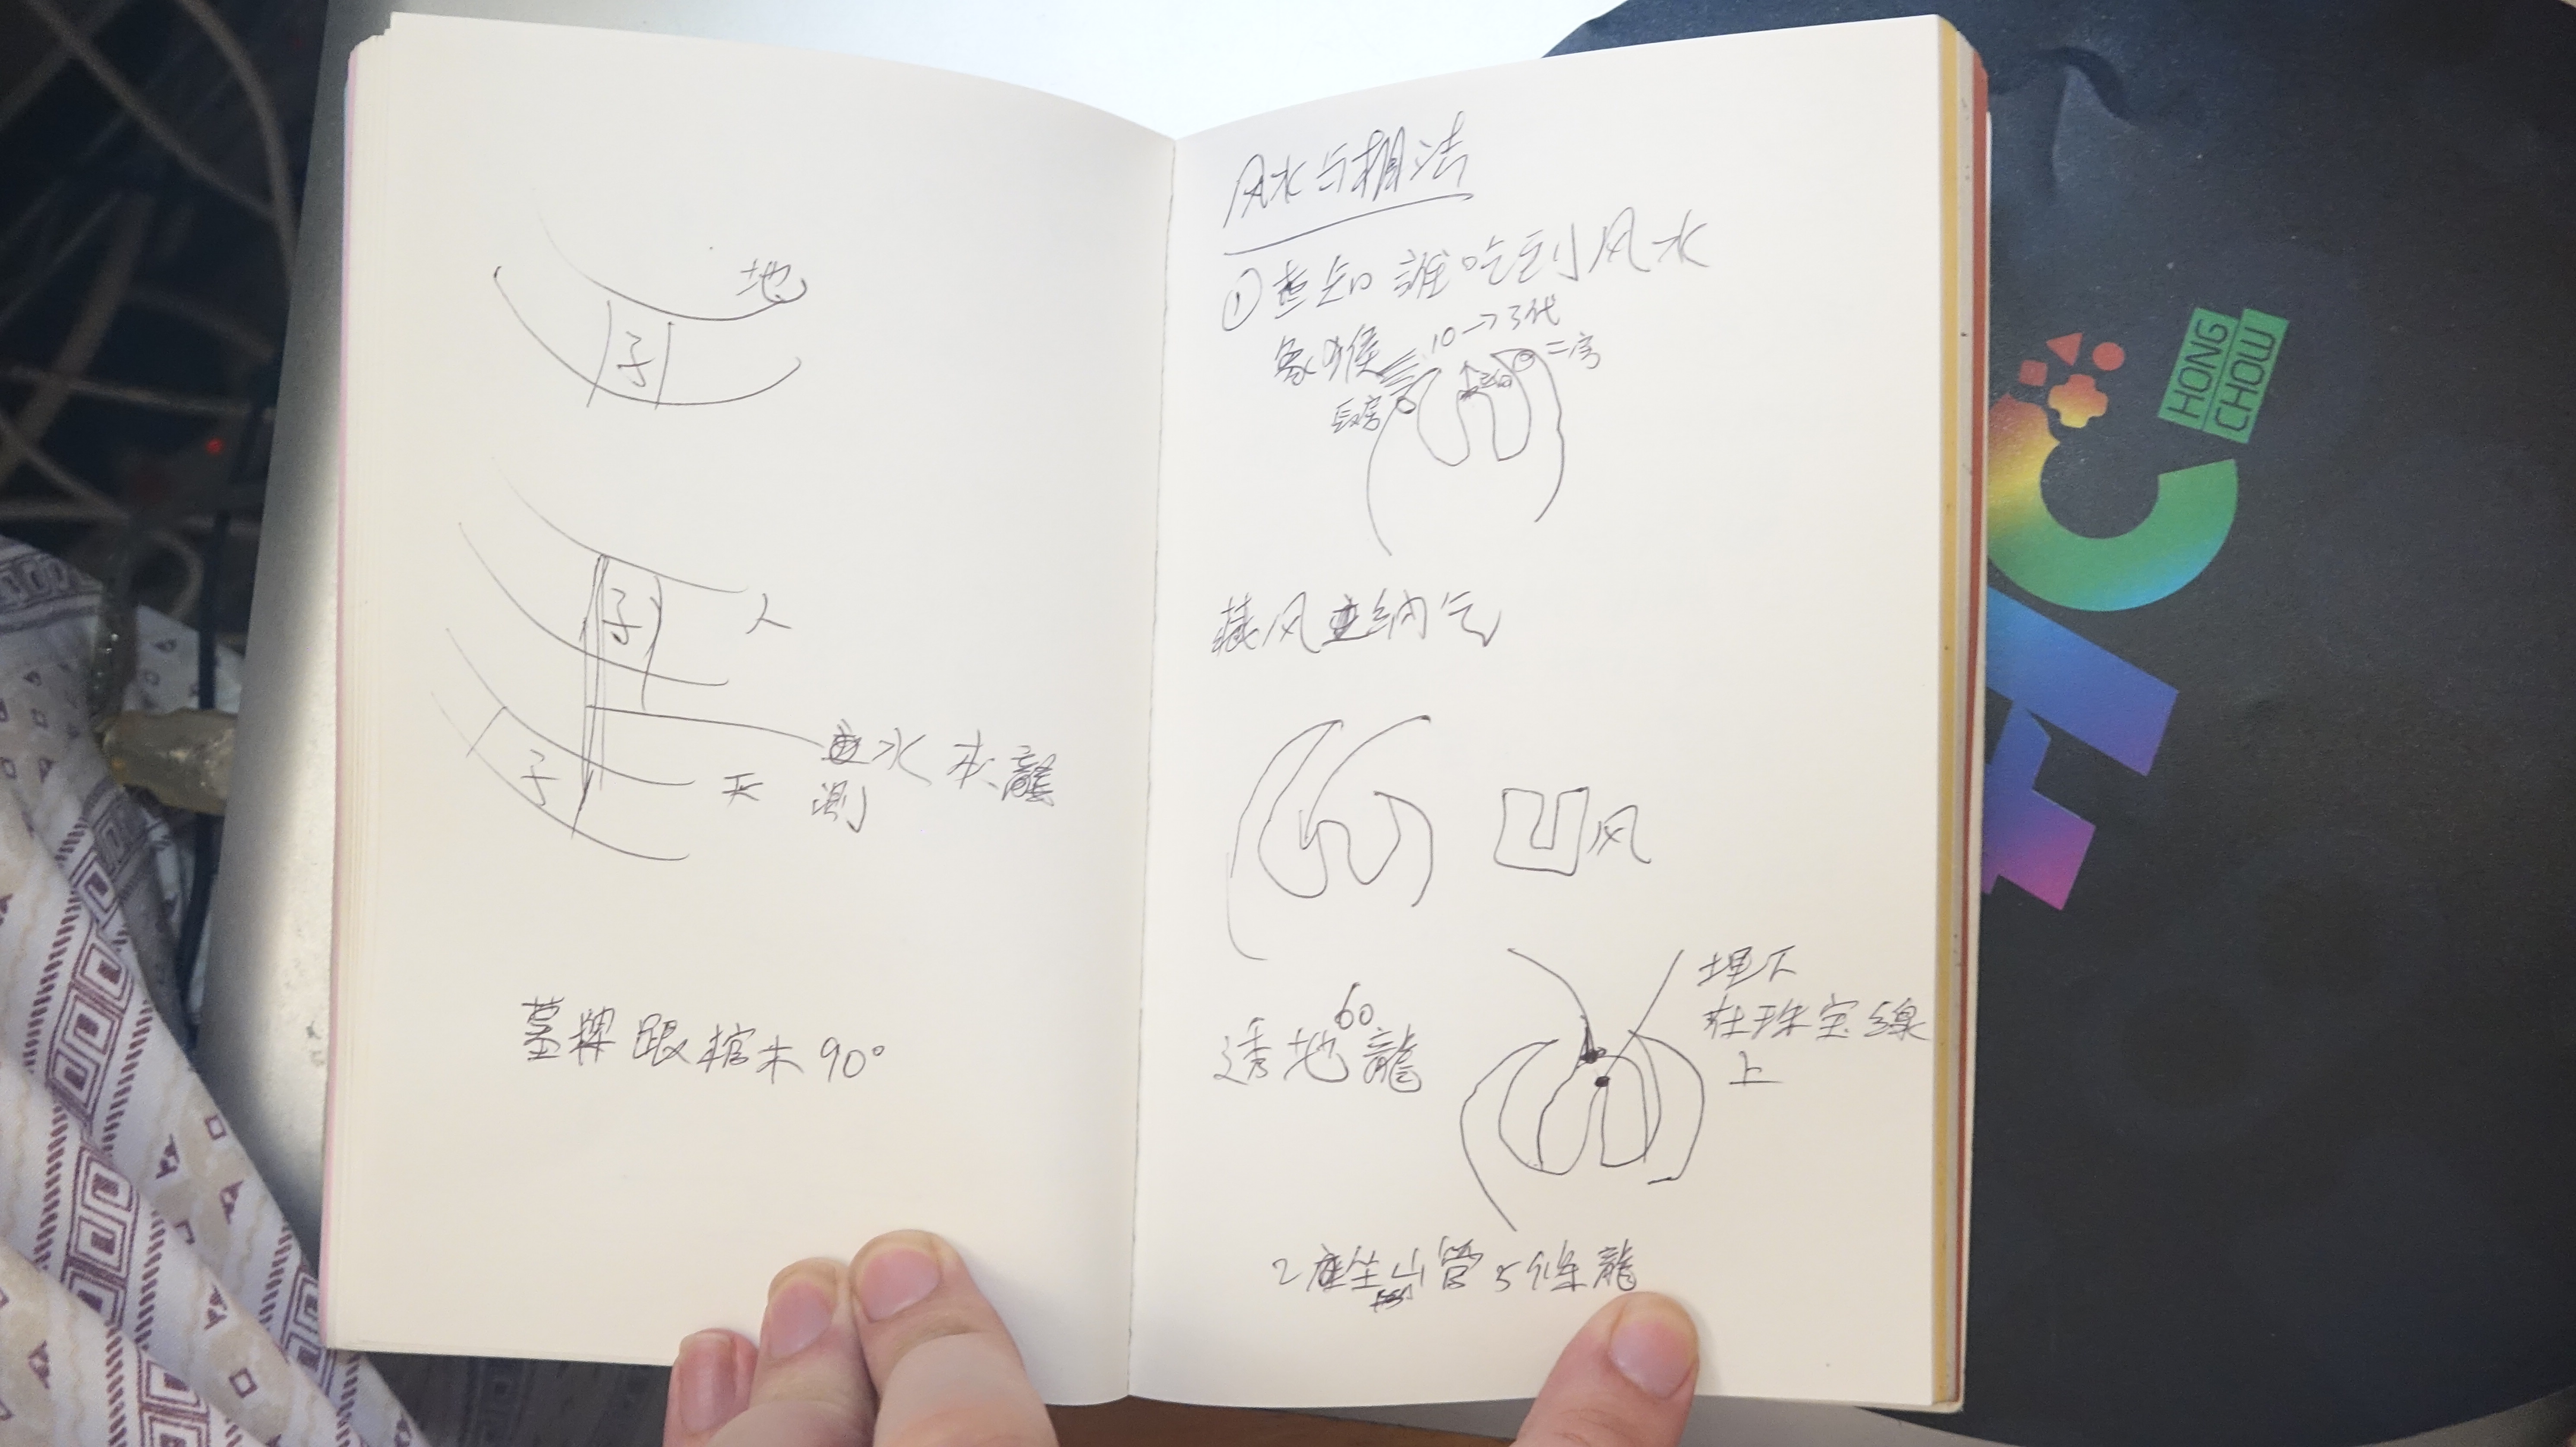 地
子
子
人
子
天
水 龍
測
墓碑跟棺木90°
风水与相法
① 查知 誰吃到风水
象 10→3代
二房
長房
藏风纳气
凹风
透地龍
60
埋下
在珠宝線
上
2座生山管5條龍
HONG
CHOW
HC